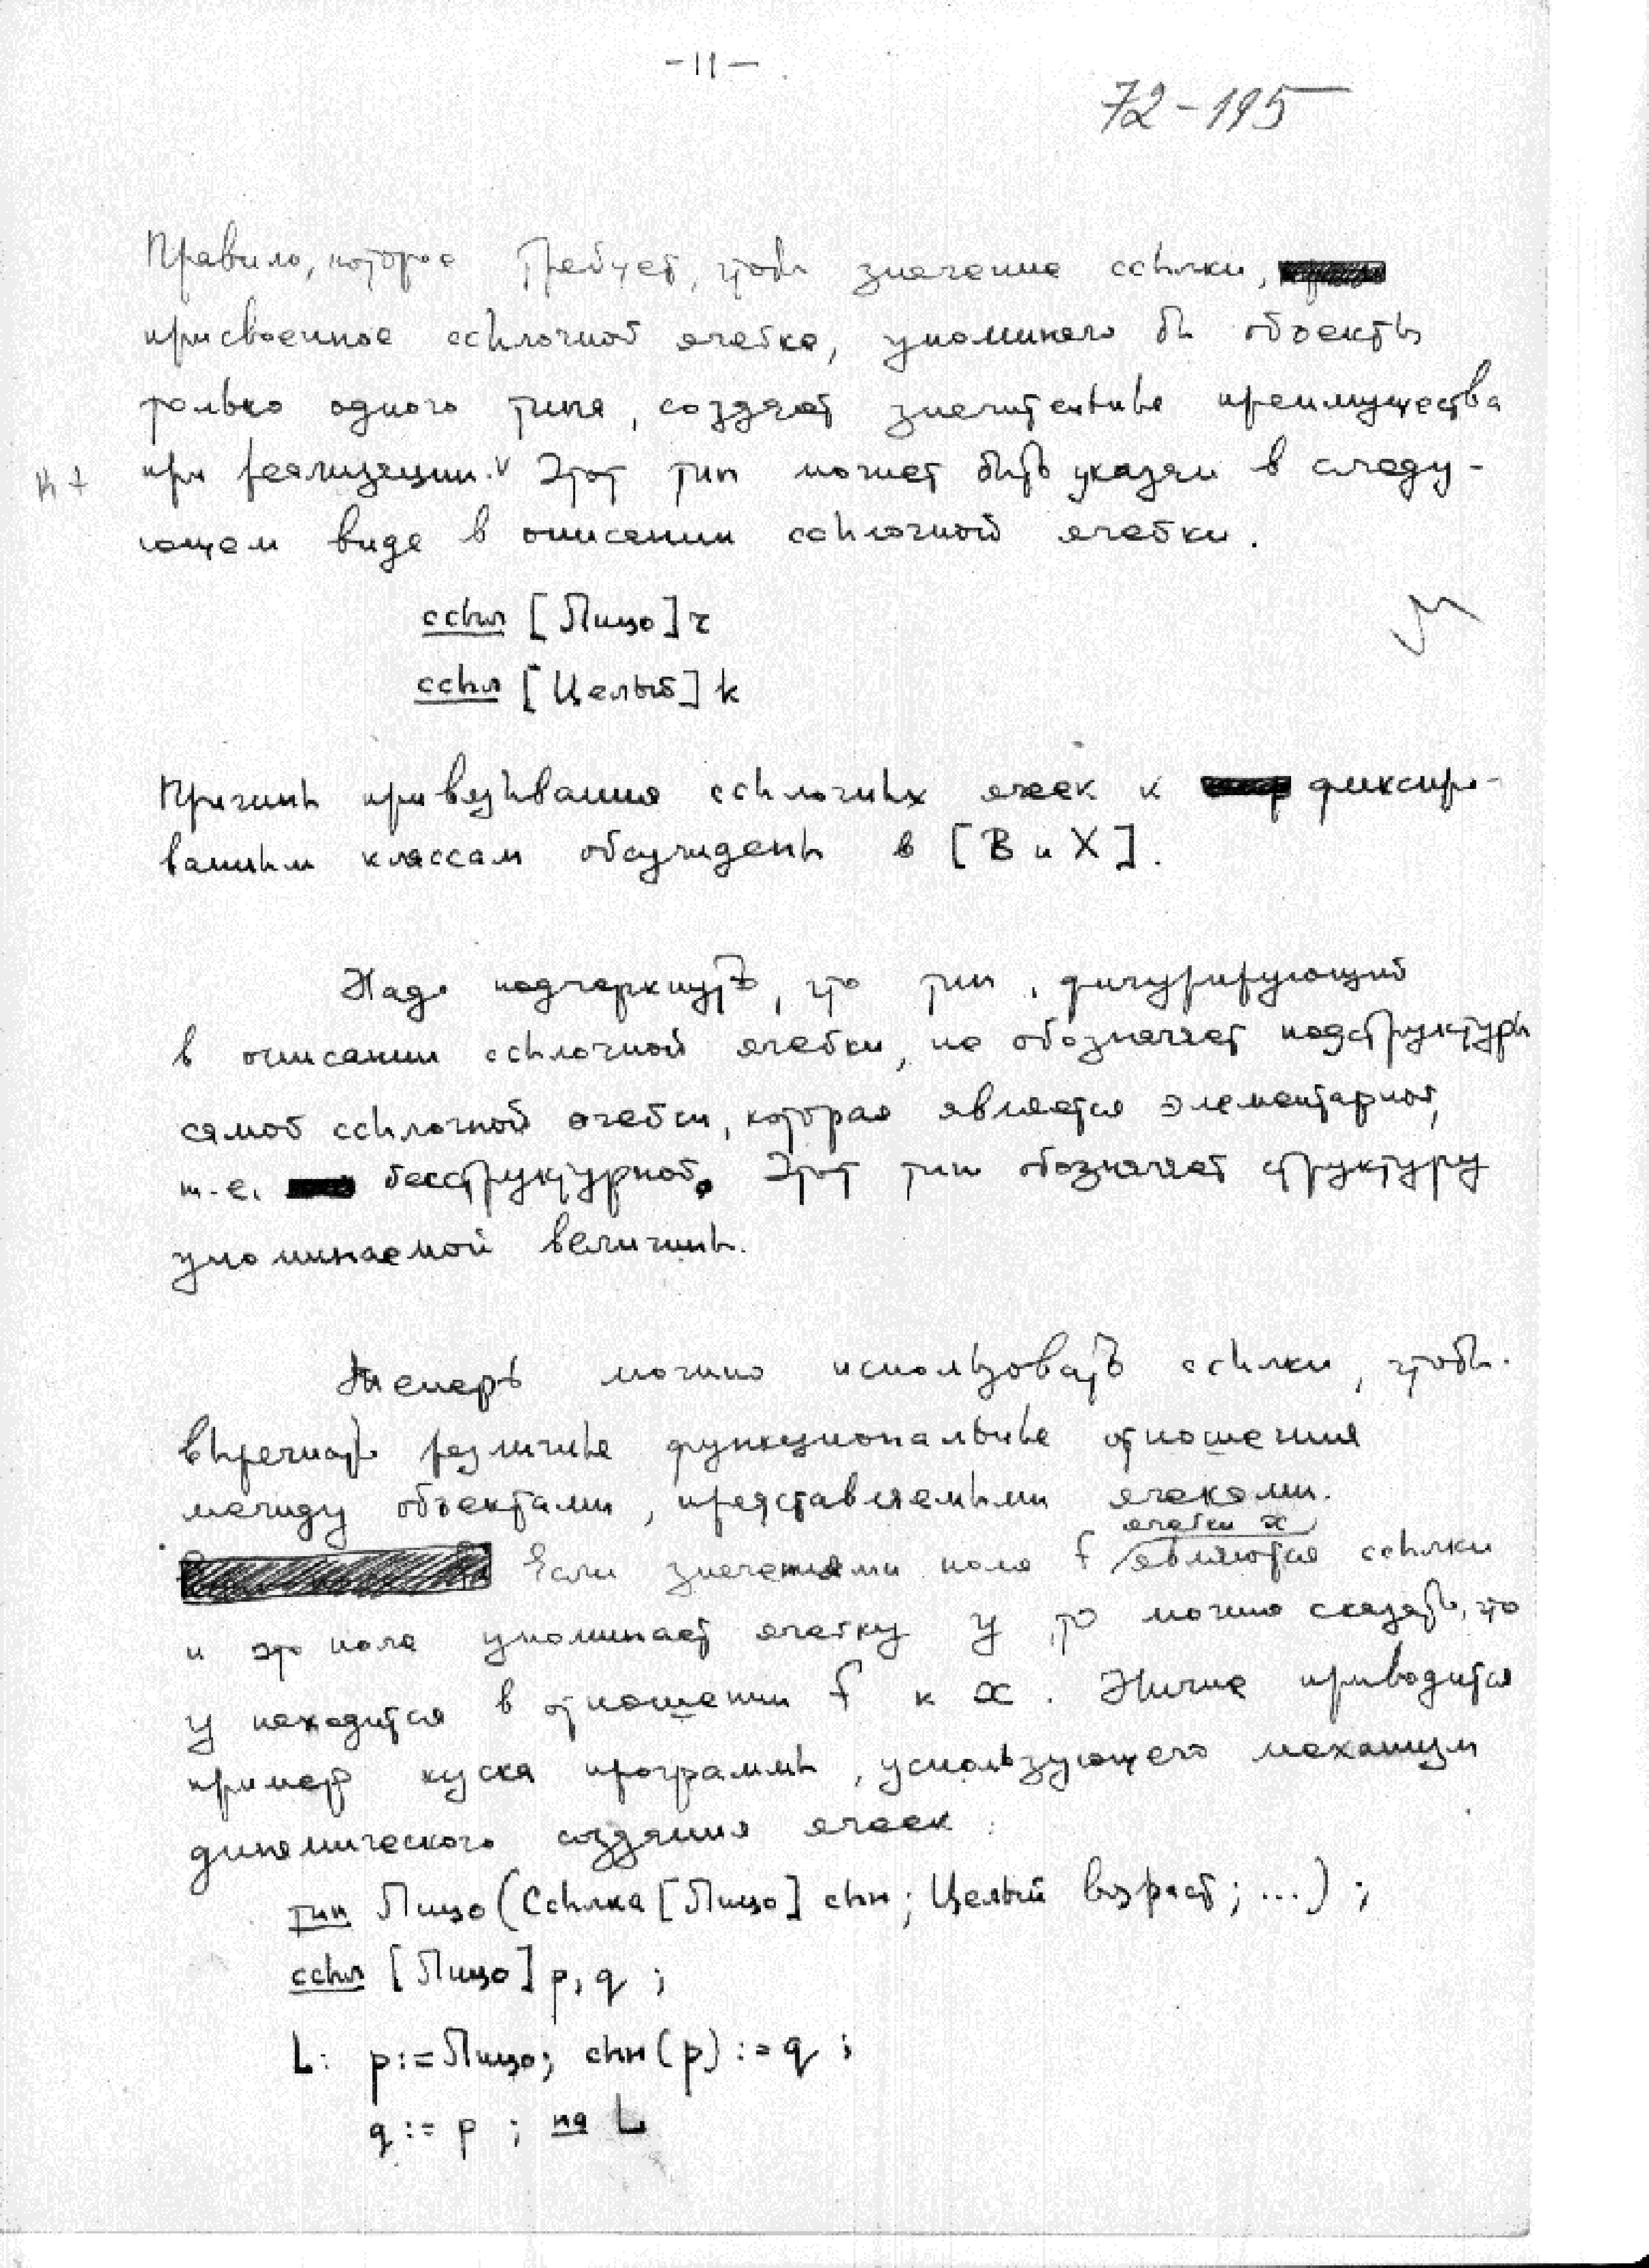 -11-
72-195
Правило, которое требует, чтобы значение ссылки,
присвоенное ссылочной ячейке, упоминало бы объекты
только одного типа, создает значительные преимущества
при реализации. V Этот тип может быть указан в следу-
ющем виде в описании ссылочной ячейки.
ссыл [Лицо] r
ссыл [Целый] k
Причины привязывания ссылочных ячеек к фиксиро-
ванным классам обсуждены в [В и Х].
Надо подчеркнуть, что тип, фигурирующий
в описании ссылочной ячейки, не обозначает подструктуры
самой ссылочной ячейки, которая является элементарной,
т.е. бесструктурной. Этот тип обозначает структуру
упоминаемой величины.
Теперь можно использовать ссылки, чтобы
выражать различные функциональные отношения
между объектами, представляемыми ячеками.
ячейки x
Если значениями поля f являются ссылки
и это поле упоминает ячейку y, то можно сказать, что
y находится в отношении f к x. Ниже приводится
пример куска программы, использующего механизм
динамического создания ячеек:
тип Лицо (Ссылка [Лицо] сын; Целый возраст; ...);
ссыл [Лицо] p, q ;
L: p:=Лицо; сын(p) := q ;
q := p ; на L